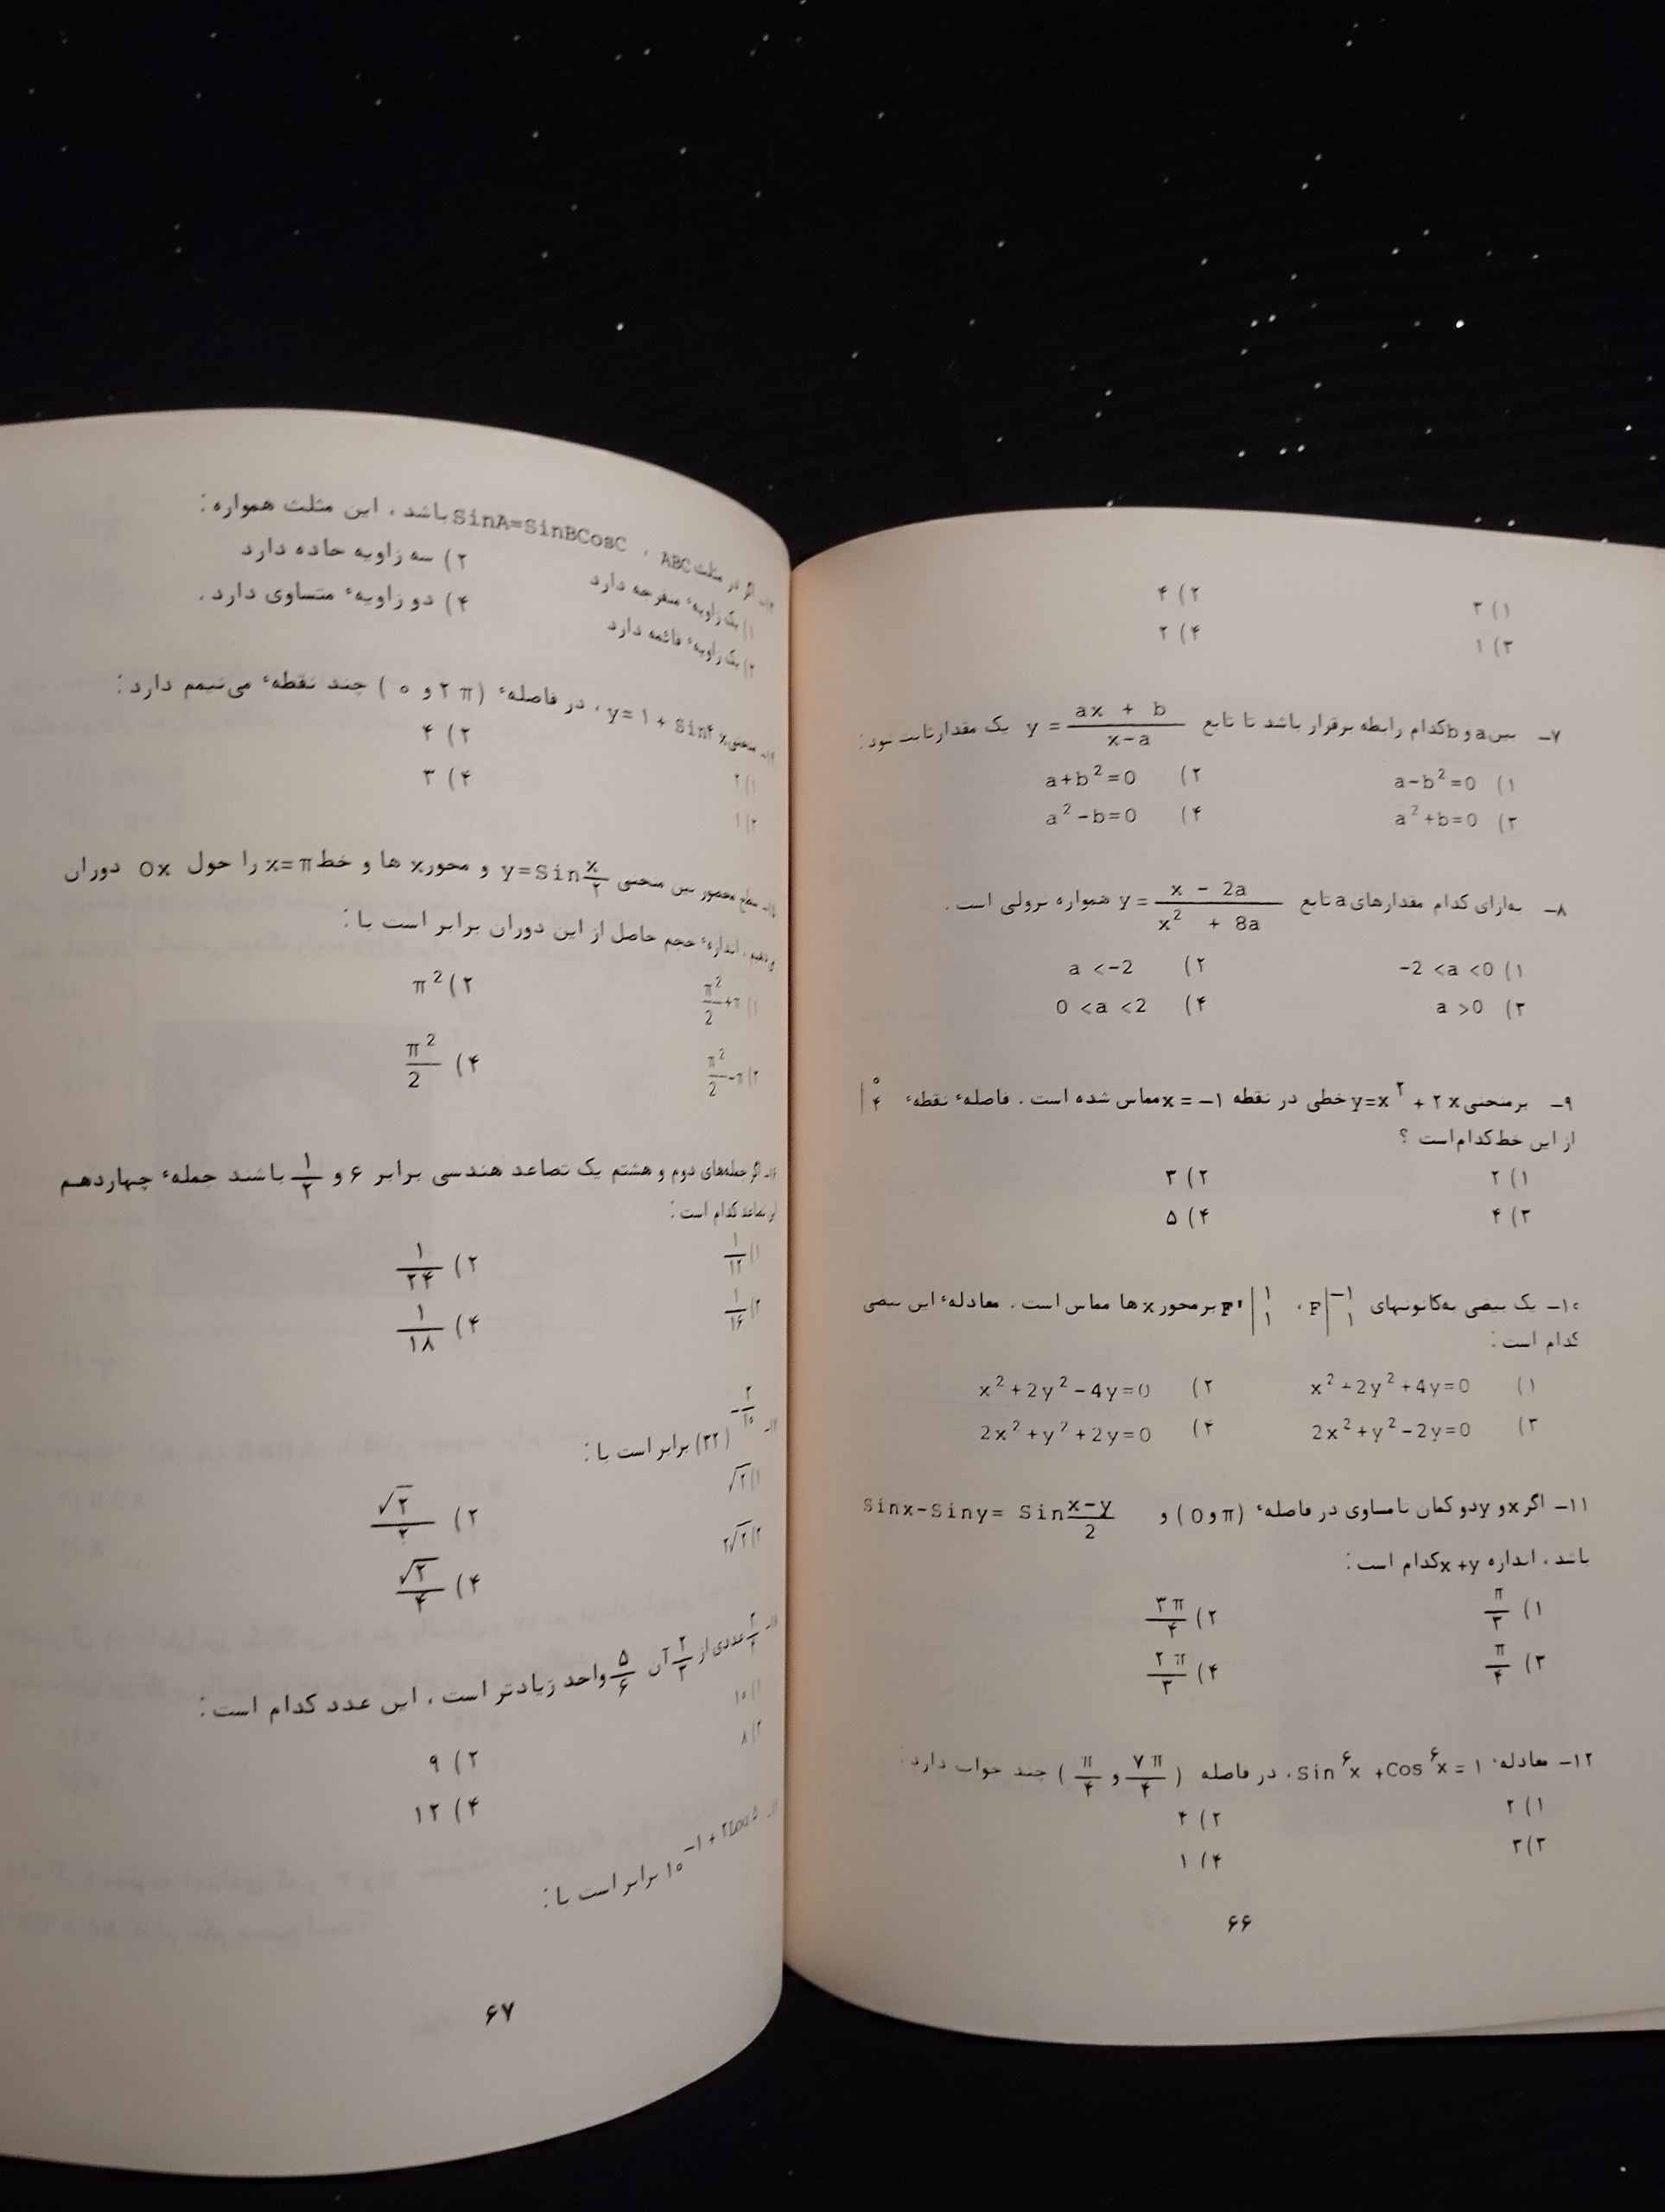 ۱) ۳ ۲) ۴
۳) ۱ ۴) ۲
۷- بین a و b کدام رابطه برقرار باشد تا تابع y = (ax + b)/(x-a) یک مقدار ثابت شود:
۱) a-b²=0 ۲) a+b²=0
۳) a²+b=0 ۴) a²-b=0
۸- به‌ازای کدام مقدارهای a تابع y = (x - 2a)/(x² + 8a) همواره نزولی است.
۱) -2 <a <0 ۲) a <-2
۳) a >0 ۴) 0 <a <2
۹- بر منحنی y=x² + ۲x خطی در نقطه x = -۱ مماس شده است. فاصلهٔ نقطهٔ |۰ ۴
از این خط کدام است ؟
۱) ۲ ۲) ۳
۳) ۴ ۴) ۵
۱۰- یک بیضی به‌کانونهای F|-۱ ۱ ، F'|۱ ۱ بر محور x ها مماس است. معادلهٔ این بیضی
کدام است:
۱) x²+2y²+4y=0 ۲) x²+2y²-4y=0
۳) 2x²+y²-2y=0 ۴) 2x²+y²+2y=0
۱۱- اگر x و y دو کمان نامساوی در فاصلهٔ (0 و π) و Sinx-Siny= Sin (x-y)/2
باشد، اندازه x+y کدام است:
۱) π/۳ ۲) ۳π/۴
۳) π/۴ ۴) ۲π/۳
۱۲- معادلهٔ Sin⁶x +Cos⁶x = ۱، در فاصله (π/۴ و ۷π/۴) چند جواب دارد:
۱) ۲ ۲) ۴
۳) ۳ ۴) ۱
۶۶
اگر در مثلث ABC ، SinA=SinBCosC باشد، این مثلث همواره:
۱) یک زاویهٔ منفرجه دارد ۲) سه زاویه حاده دارد
۳) یک زاویهٔ قائمه دارد ۴) دو زاویهٔ متساوی دارد.
منحنی y= ۱ + Sin⁴x، در فاصلهٔ (۰ و ۲π) چند نقطهٔ می‌نیمم دارد:
۱) ۲ ۲) ۴
۳) ۱ ۴) ۳
سطح محصور بین منحنی y=Sin x/۲ و محور x ها و خط x=π را حول Ox دوران
می‌دهیم، اندازهٔ حجم حاصل از این دوران برابر است با:
۱) π²/2 +π ۲) π²
۳) π²/2 -π ۴) π²/2
اگر جمله‌های دوم و هشتم یک تصاعد هندسی برابر ۶ و ۱/۲ باشند جملهٔ چهاردهم
این تصاعد کدام است:
۱) ۱/۱۲ ۲) ۱/۲۴
۳) ۱/۱۶ ۴) ۱/۱۸
(۳۲)^(-۳/۱۰) برابر است با:
۱) √۲ ۲) √۲/۲
۳) ۲√۲ ۴) √۲/۴
عددی از ۲/۳ آن ۵/۶ واحد زیادتر است، این عدد کدام است:
۱) ۱۰ ۲) ۹
۳) ۸ ۴) ۱۲
۱۰^(-۱ + ۲Log۵) برابر است با:
۶۷